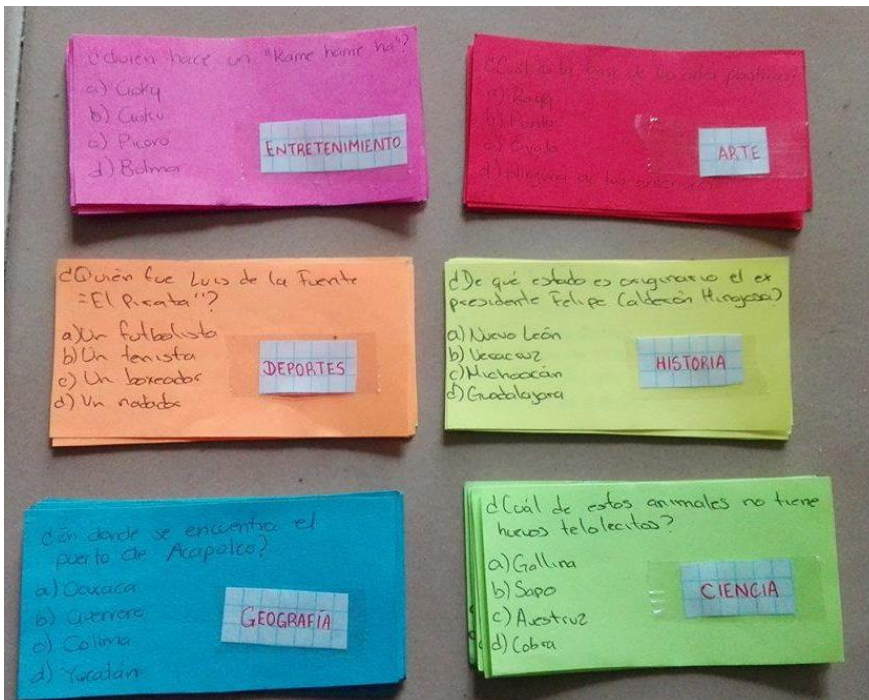 ¿Quién hace un "Kame hame ha"?
a) Goky
b) Goku
c) Picoro
d) Bolma
ENTRETENIMIENTO
¿Cuál es la base de las artes plasticas?
a) Raya
b) Punto
c) Ovalo
d) Ninguna de las anteriores
ARTE
¿Quién fue Luis de la Fuente
"El Pirata"?
a) Un futbolista
b) Un tenista
c) Un boxeador
d) Un nadador
DEPORTES
¿De qué estado es originario el ex
presidente Felipe Calderón Hinojosa?
a) Nuevo León
b) Veracruz
c) Michoacán
d) Guadalajara
HISTORIA
¿En donde se encuentra el
puerto de Acapulco?
a) Oaxaca
b) Guerrero
c) Colima
d) Yucatán
GEOGRAFÍA
¿Cuál de estos animales no tiene
huevos telolecitos?
a) Gallina
b) Sapo
c) Avestruz
d) Cobra
CIENCIA